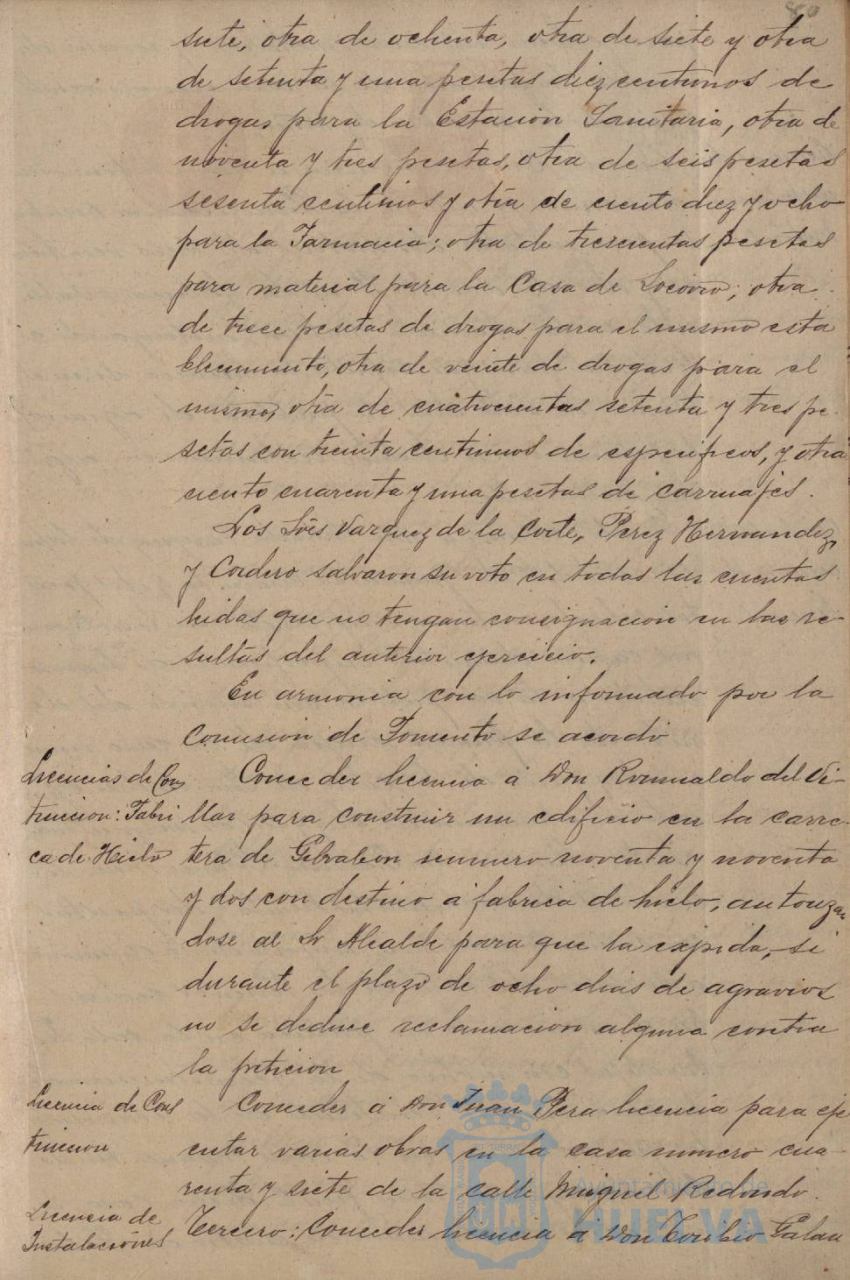 80
siete, otra de ochenta, otra de siete y otra
de setenta y una pesetas diez centimos de
drogas para la Estacion Sanitaria, otra de
noventa y tres pesetas, otra de seis pesetas
sesenta centimos y otra de ciento diez y ocho
para la Farmacia; otra de trescientas pesetas
para material para la Casa de Socorro; otra
de trece pesetas de drogas para el mismo esta
blecimiento, otra de veinte de drogas para el
mismo, otra de cuatrocientas setenta y tres pe-
setas con treinta centimos de especificos, y otra
ciento cuarenta y una pesetas de carruajes.
Los Sres Vazquez de la Corte, Perez Hernandez,
y Cordero salvaron su voto en todas las cuentas
leidas que no tengan consignacion en las re-
sultas del anterior ejercicio.
En armonia con lo informado por la
Comision de Fomento se acordó
Licencias de Cons
truccion: Fabri
ca de Hielo
Conceder licencia á Don Romualdo del Vi-
llar para construir un edificio en la carre-
tera de Gibraleon numero noventa y noventa
y dos con destino á fabrica de hielo, autorizan
dose al Sr Alcalde para que la expida, si
durante el plazo de ocho dias de agravios
no se deduce reclamacion alguna contra
la peticion
Licencia de Cons
truccion
Conceder á Don Juan Pera licencia para eje
cutar varias obras en la casa numero cua-
renta y siete de la calle Miguel Redondo.
Licencia de
Instalaciones
Tercero: Conceder licencia á Don Toribio Galan
Ayuntamiento de
HUELVA